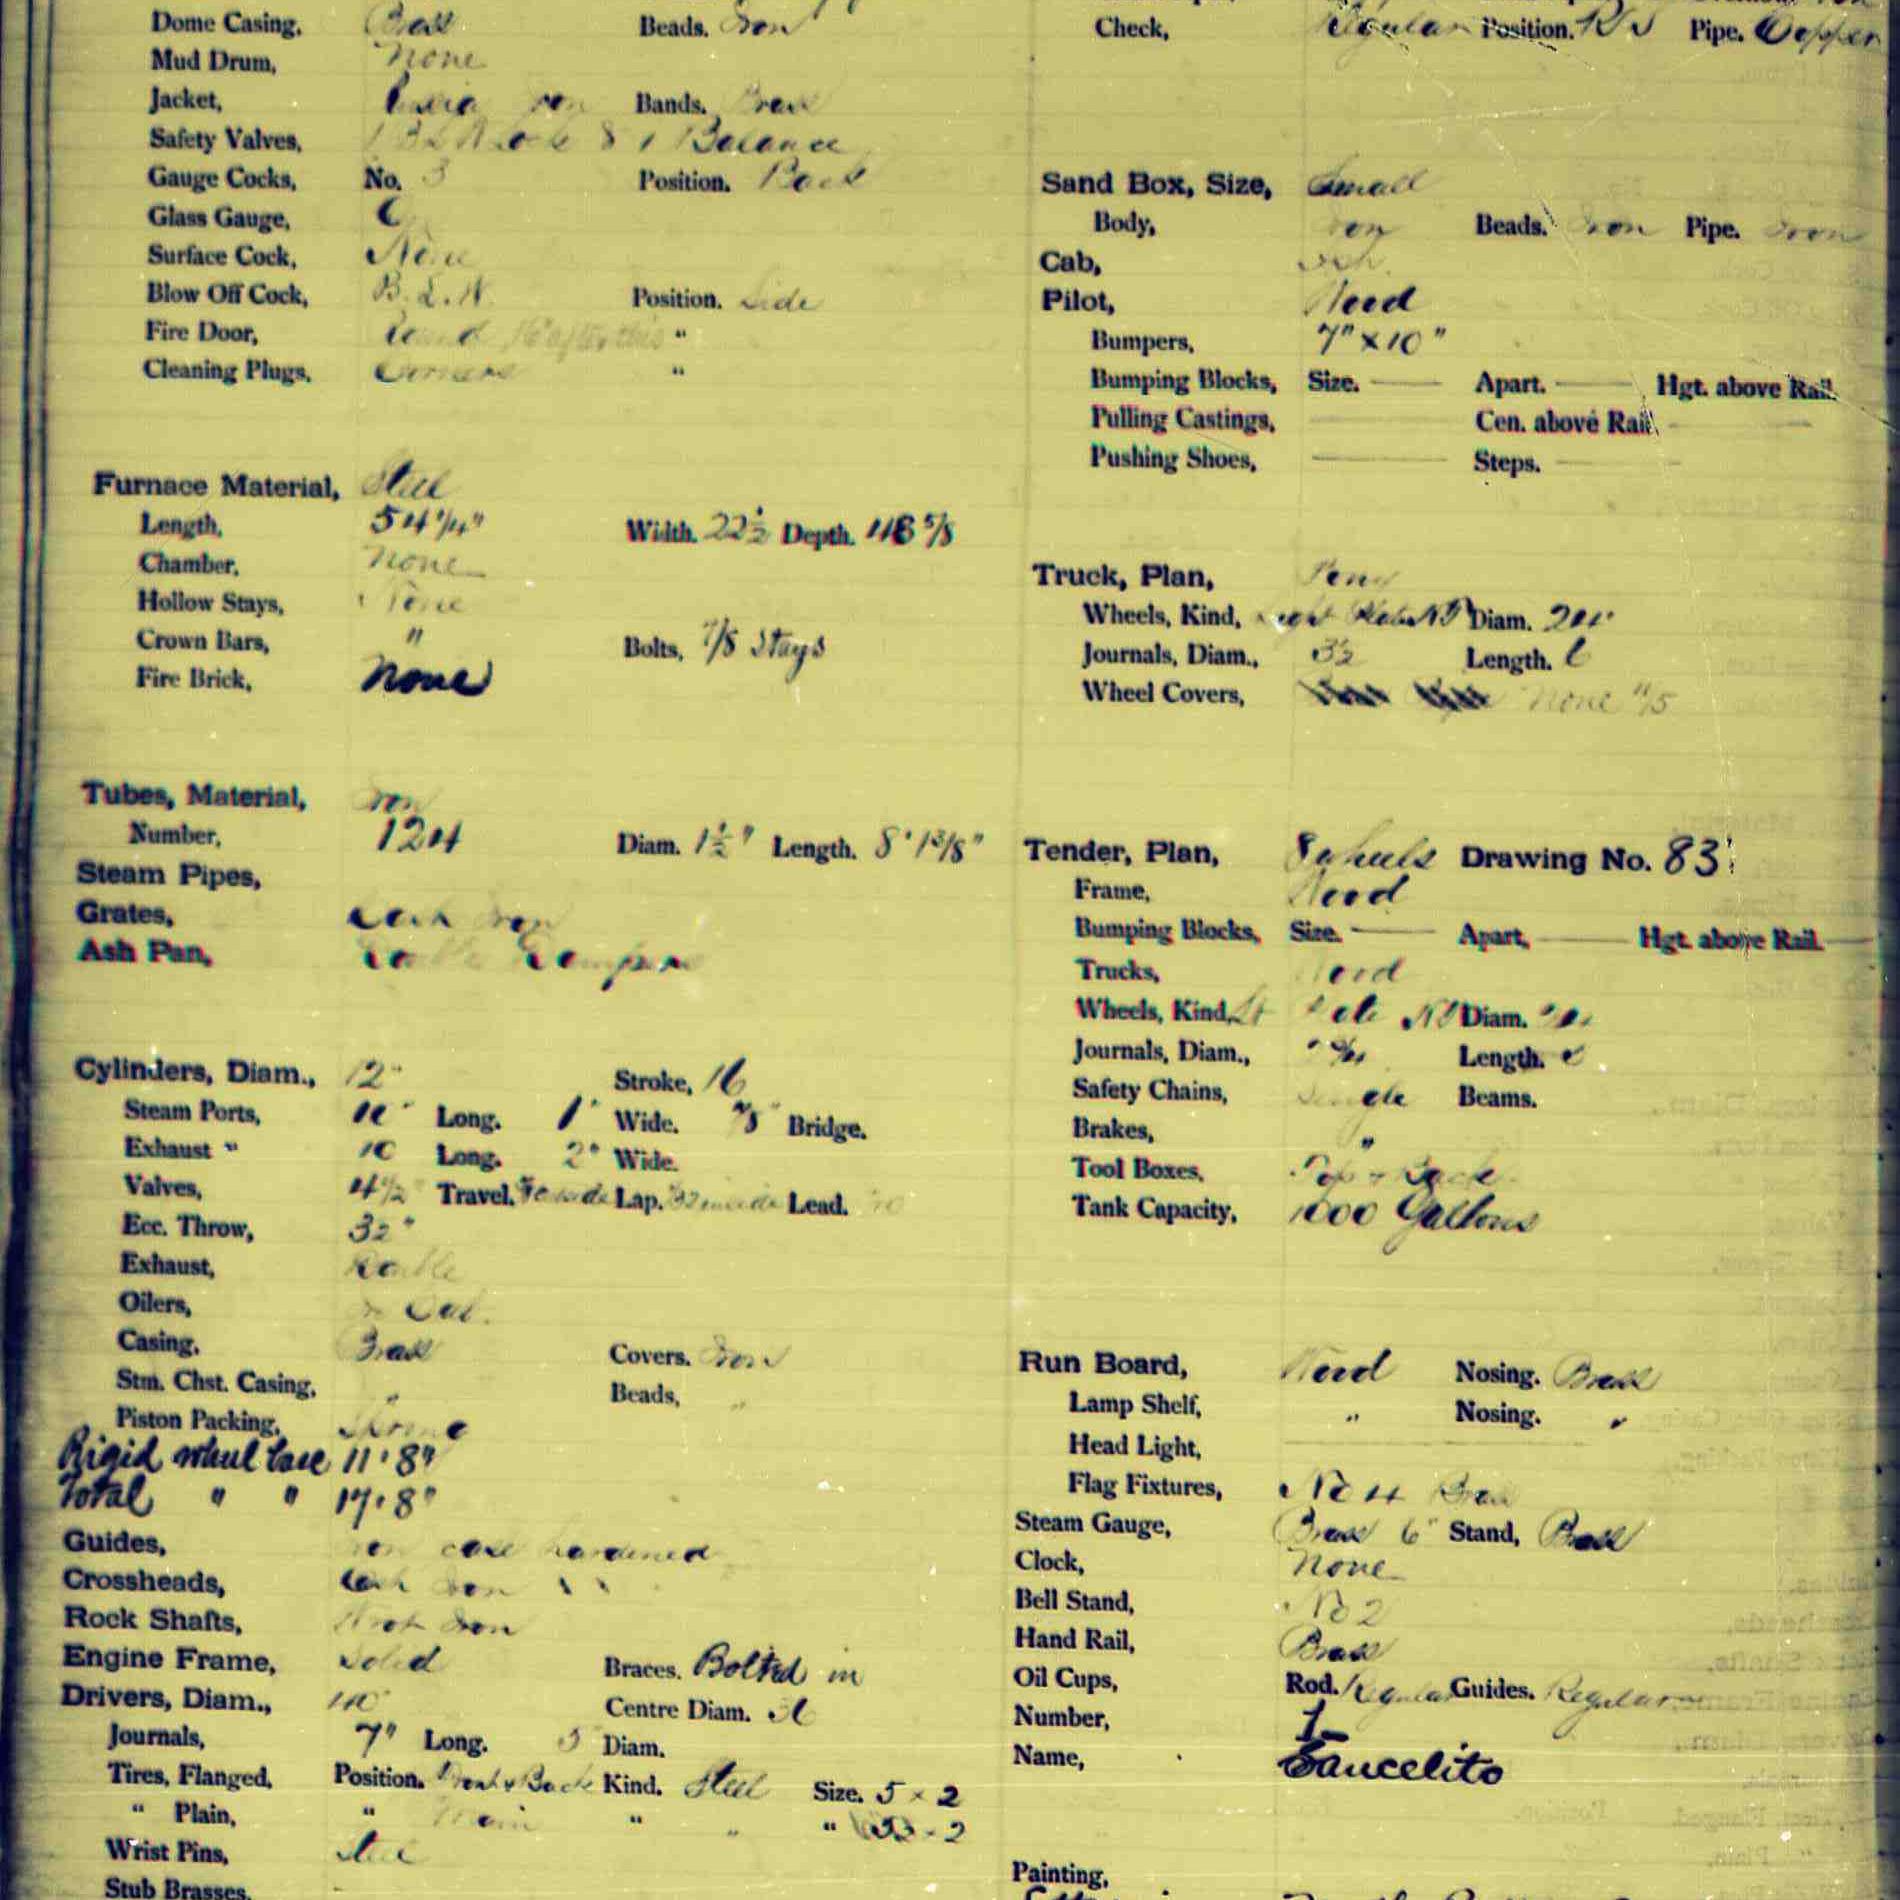 Dome Casing, Brass Beads. Iron
Mud Drum, None
Jacket, Russia Iron Bands. Brass
Safety Valves, 1 Balance
Gauge Cocks, No. 3 Position. Back
Glass Gauge,
Surface Cock, None
Blow Off Cock, B.L.W. Position. Side
Fire Door, Round 16" after this "
Cleaning Plugs, Corners "
Furnace Material, Steel
Length, 54 1/4" Width. 22 1/2 Depth. 5/8
Chamber, None
Hollow Stays, None
Crown Bars, " Bolts, 7/8 Stays
Fire Brick, None
Tubes, Material, Iron
Number, 124 Diam. 1 1/2" Length. 8' 1 3/8"
Steam Pipes,
Grates, Cast Iron
Ash Pan, Double Dampers
Cylinders, Diam., 12" Stroke, 16
Steam Ports, Long. 1" Wide. 7/8" Bridge.
Exhaust " 10 Long. 2" Wide.
Valves, 4 1/2" Travel. Lap. inside Lead.
Ecc. Throw,
Exhaust, Double
Oilers, in Cab.
Casing, Brass Covers. Iron
Stm. Chst. Casing, " Beads, "
Piston Packing, Spring
Rigid wheel base 11' 8"
Total " " 17' 8"
Guides, Iron case hardened
Crossheads, Cast Iron " "
Rock Shafts, Wrot Iron
Engine Frame, Solid Braces. Bolted in
Drivers, Diam., 40" Centre Diam. 36
Journals, 7" Long. 5" Diam.
Tires, Flanged, Position. Front & Back Kind. Steel Size. 5 x 2
" Plain, " Main " " "
Wrist Pins, Steel
Stub Brasses,
Check, Regular Position. Pipe. Copper
Sand Box, Size, Small
Body, Iron Beads. Iron Pipe. Iron
Cab, Ash.
Pilot, Wood
Bumpers, 7" x 10"
Bumping Blocks, Size. — Apart. — Hgt. above Rail.
Pulling Castings, — Cen. above Rail —
Pushing Shoes, — Steps. —
Truck, Plan, Pony
Wheels, Kind, Light Diam. 24"
Journals, Diam., Length. 6
Wheel Covers, None
Tender, Plan, 8 wheels Drawing No. 83
Frame, Wood
Bumping Blocks, Size. — Apart, — Hgt. above Rail. —
Trucks, Wood
Wheels, Kind, Lt Plate Diam. 24
Journals, Diam., Length.
Safety Chains, Single Beams.
Brakes, "
Tool Boxes, Top & Back.
Tank Capacity, 1000 Gallons
Run Board, Wood Nosing. Brass
Lamp Shelf, " Nosing. "
Head Light, —
Flag Fixtures, No 4 Brass
Steam Gauge, Brass 6" Stand, Brass
Clock, None
Bell Stand, No 2
Hand Rail, Brass
Oil Cups, Rod. Regular Guides. Regular
Number, 1
Name, Saucelito
Painting,